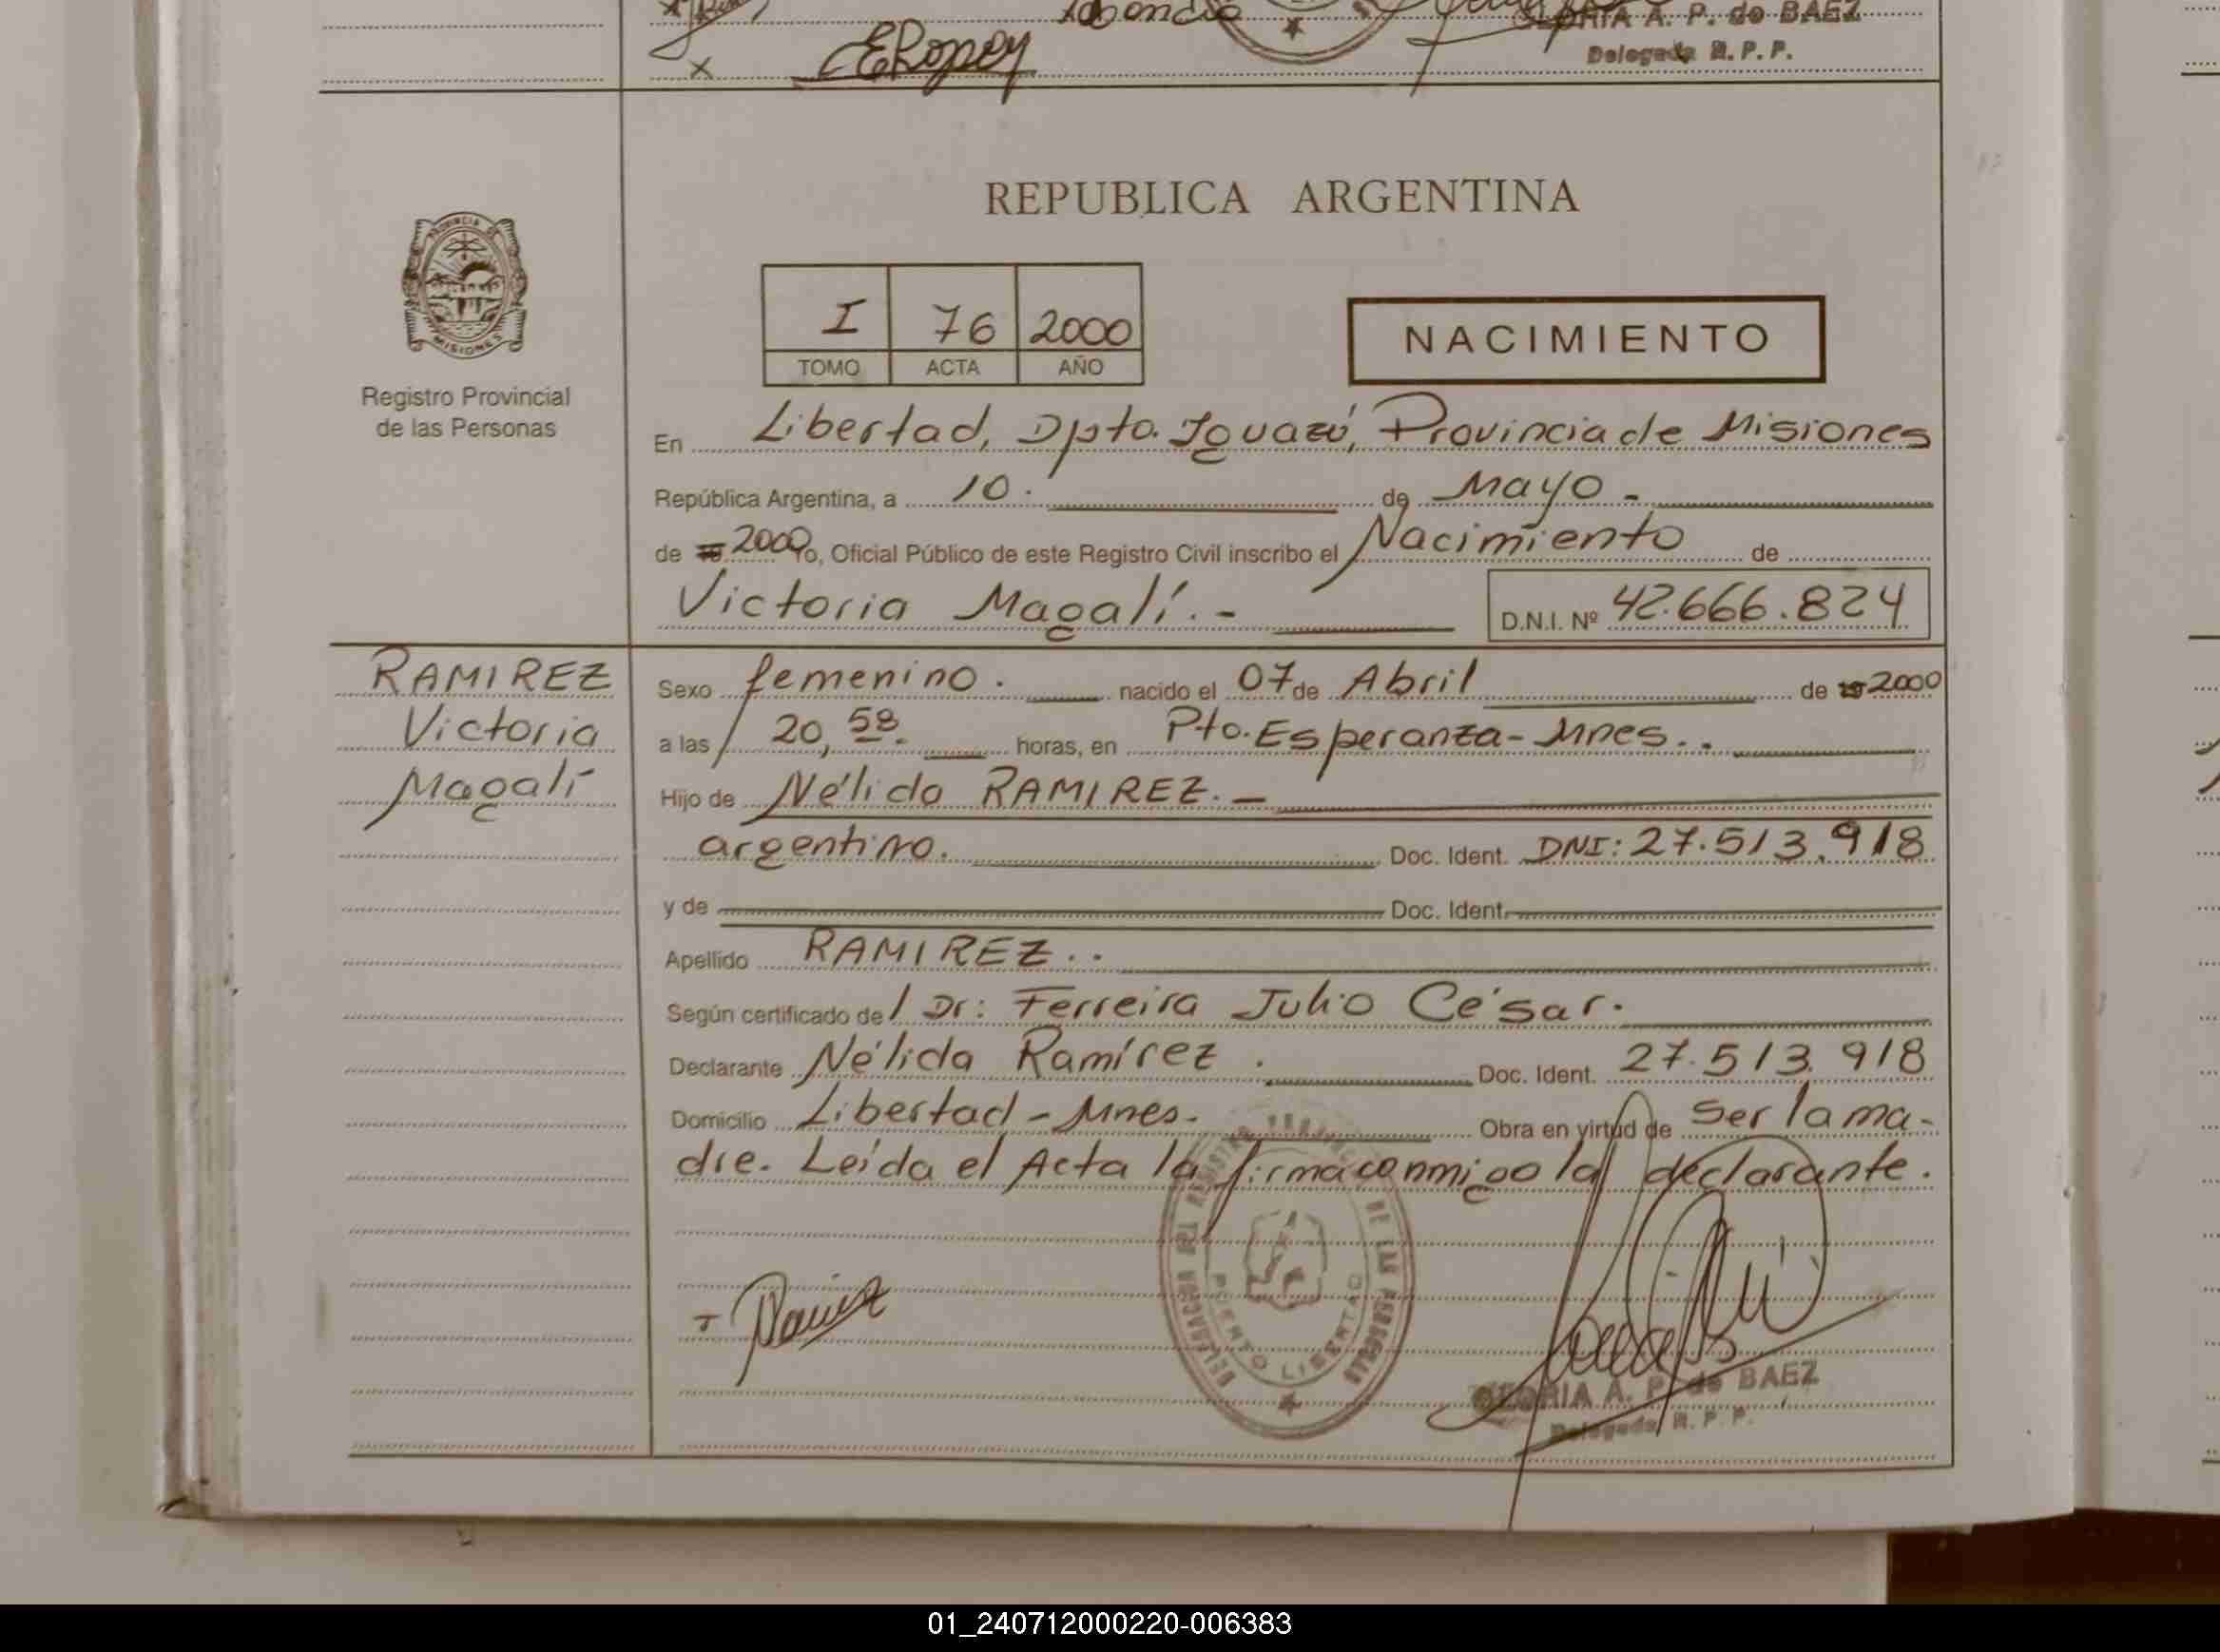 GLORIA A. P. de BAEZ
ERopey
Delegada R. P. P.
x
REPUBLICA ARGENTINA
PROVINCIA DE MISIONES
I 76 2000
TOMO ACTA AÑO
NACIMIENTO
Registro Provincial
de las Personas
En Libertad, Dpto. Iguazú, Provincia de Misiones
República Argentina, a 10. de Mayo -
de 19 2000 Yo, Oficial Público de este Registro Civil inscribo el Nacimiento de
Victoria Magalí. - D.N.I. Nº 42.666.824
RAMIREZ
Victoria
Magalí
Sexo femenino. nacido el 07 de Abril de 19 2000
a las 20,58. horas, en Pto. Esperanza - Mnes..
Hijo de Nélida RAMIREZ. -
argentina. Doc. Ident. DNI: 27.513.918
y de Doc. Ident.
Apellido RAMIREZ..
Según certificado de Dr: Ferreira Julio César.
Declarante Nélida Ramírez. Doc. Ident. 27.513.918
Domicilio Libertad - Mnes. Obra en virtud de Ser la ma-
dre. Leída el Acta la firma conmigo la declarante.
DELEGACION DEL REGISTRO PROVINCIAL DE LAS PERSONAS
PUERTO LIBERTAD
Ramirez
GLORIA A. P. de BAEZ
Delegada R. P. P.
01_240712000220-006383